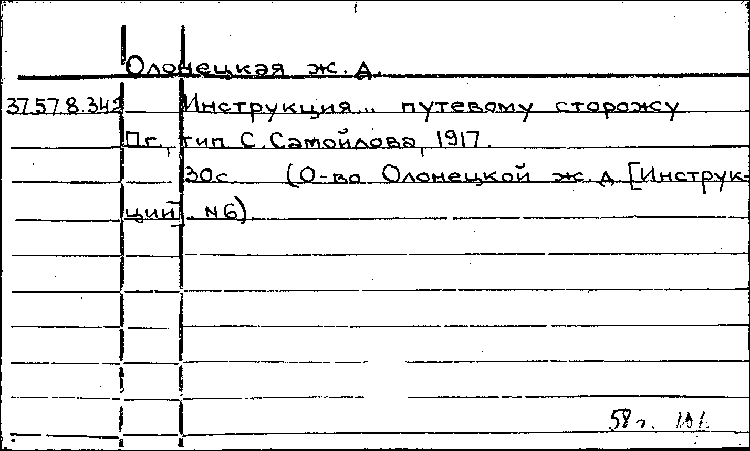 Олонецкая ж. д.
37.57.8.342 Инструкция... путевому сторожу
Пг., тип С. Самойлова, 1917.
30с. (О-во Олонецкой ж. д [Инструк-
ций]. №6)
58 г.